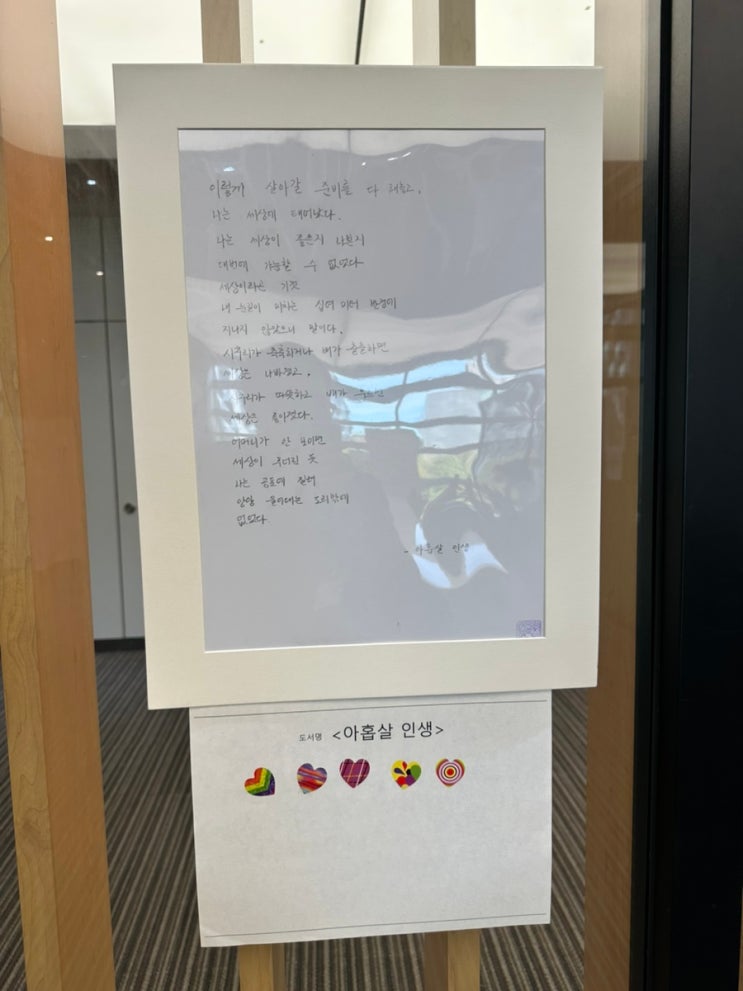 이렇게 살아갈 준비를 다 해놓고,
나는 세상에 태어났다.
나는 세상이 좋은지 나쁜지
대번에 가늠할 수 없었다
세상이라곤 기껏
내 눈길이 미치는 십여 미터 반경이
지나지 않았으니 말이다.
사추리가 축축하거나 배가 출출하면
세상은 나빠졌고,
사추리가 따뜻하고 배가 부르면
세상은 좋아졌다.
어머리가 안 보이면
세상이 무너진 듯
나는 공포에 질려
앙앙 울어대는 도리밖에
없었다
- 아홉살 인생
도서명 <아홉살 인생>